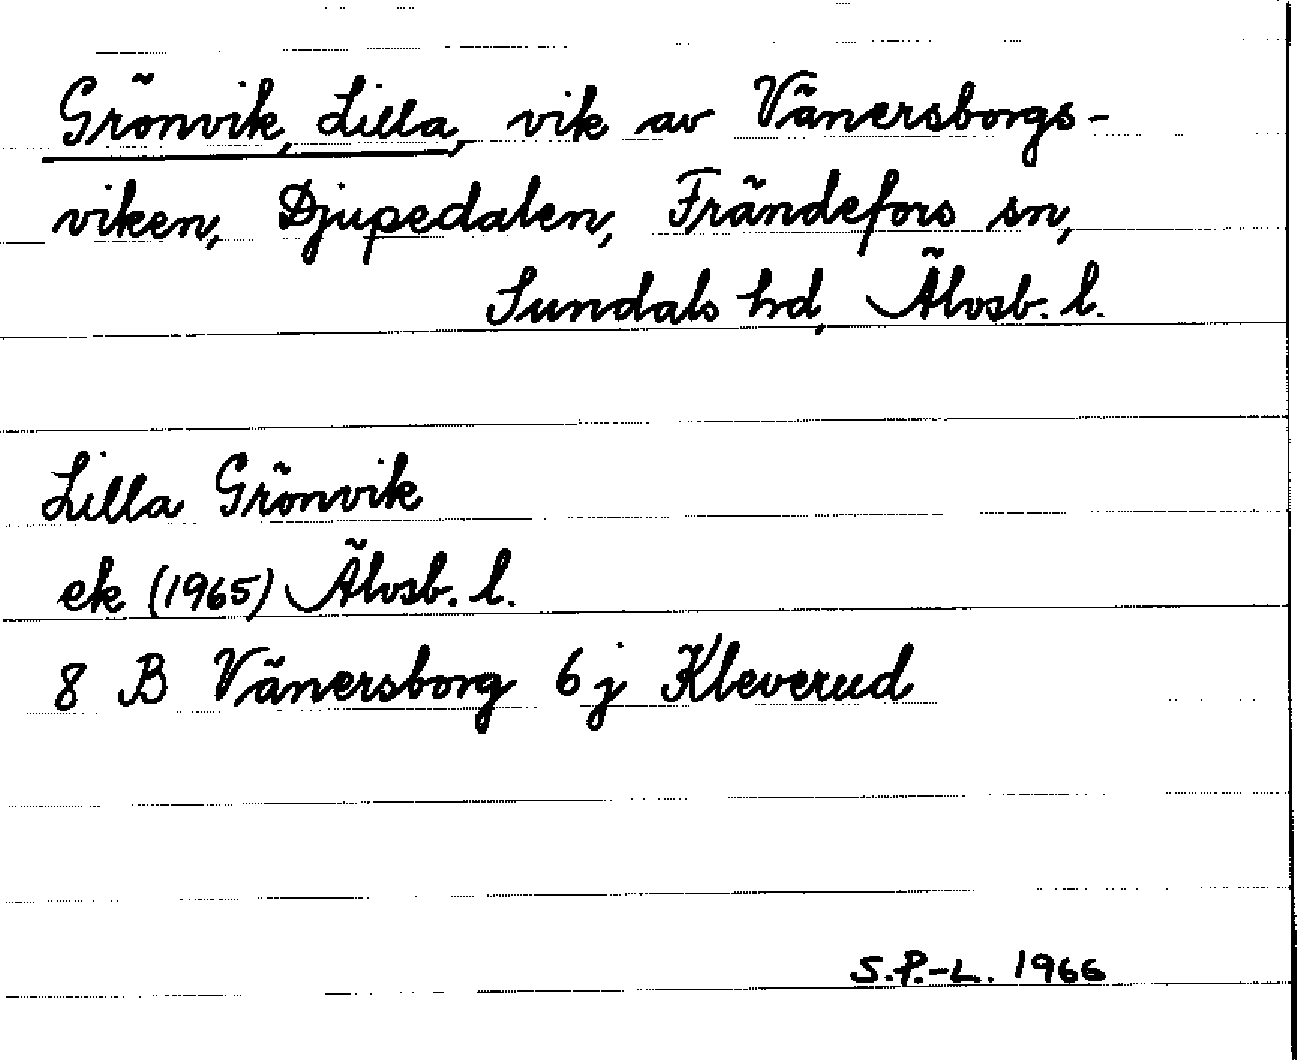 Grönvik, Lilla, vik av Vänersborgs-
viken, Djupedalen, Frändefors sn,
Sundals hd, Älvsb. l.
Lilla Grönvik
ek (1965) Älvsb. l.
8 B Vänersborg 6 j Kleverud
S.P.-L. 1966